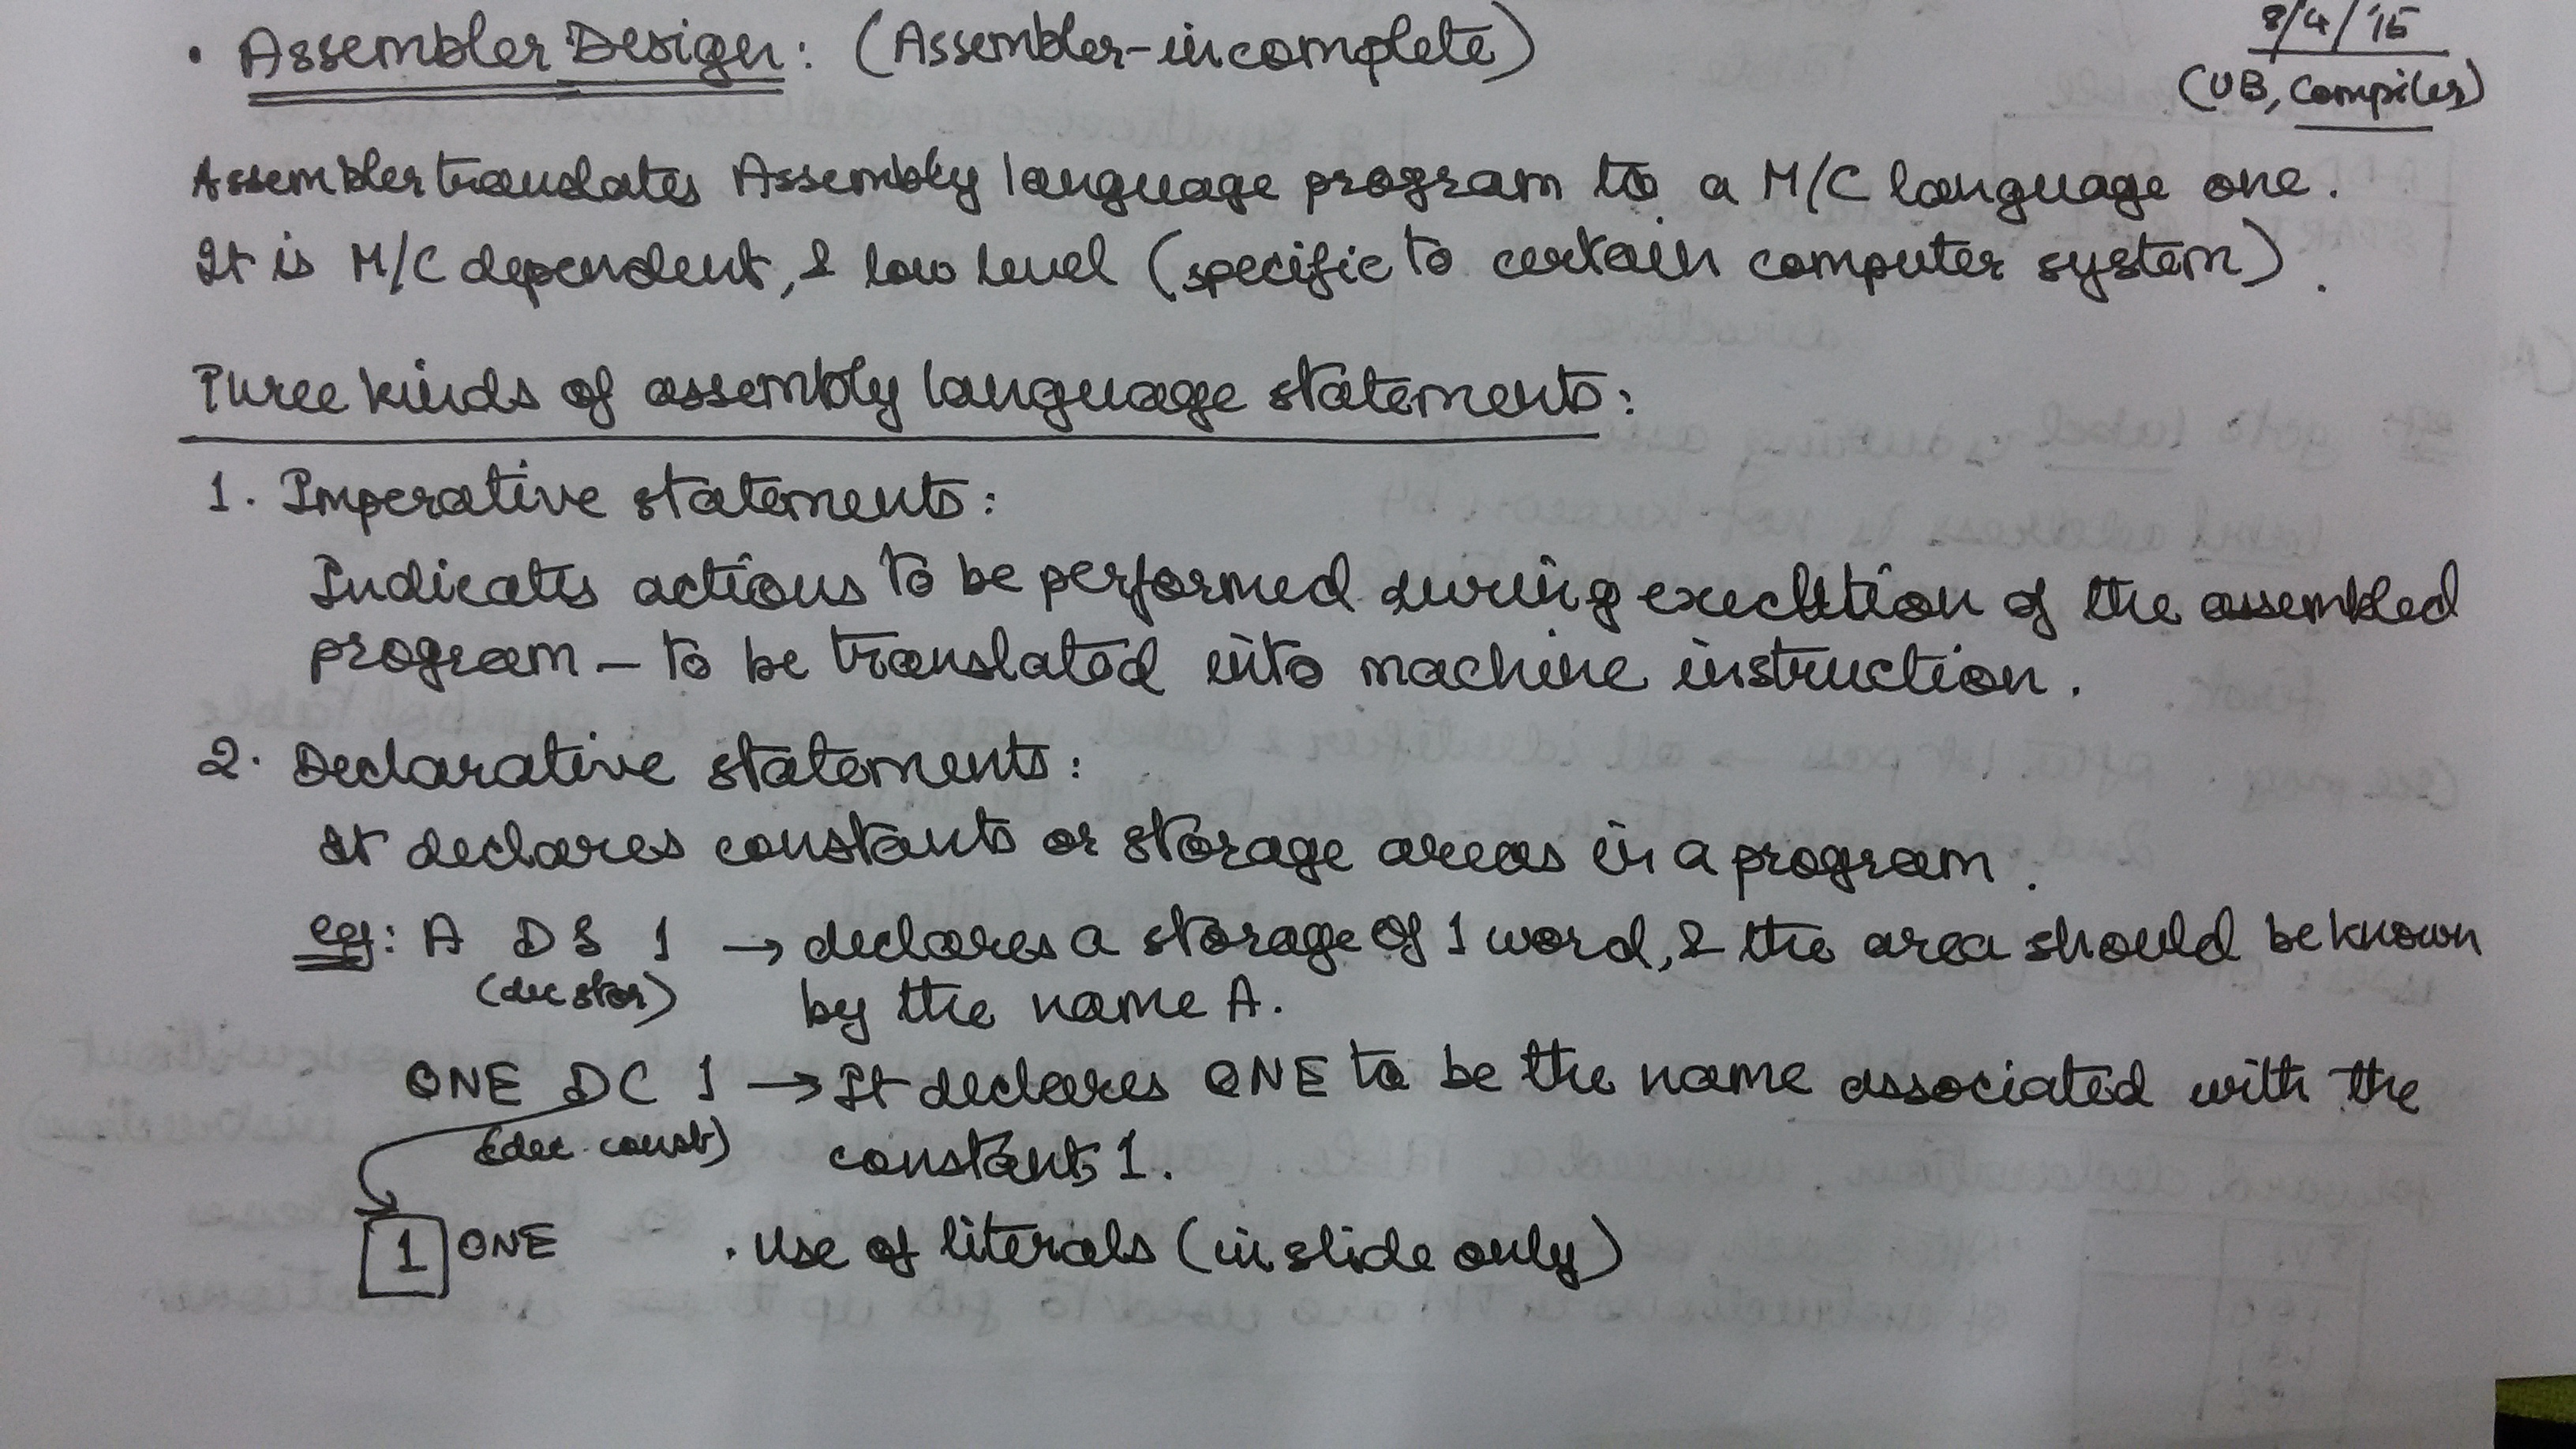 8/4/'15
• Assembler Design: (Assembler-incomplete)
(UB, Compiler)
Assembler translates Assembly language program to a M/C language one.
It is M/C dependent, & low level (specific to certain computer system).
Three kinds of assembly language statements:
1. Imperative statements:
Indicates actions to be performed during execution of the assembled
program - to be translated into machine instruction.
2. Declarative statements:
It declares constants or storage areas in a program.
eg: A DS 1 → declares a storage of 1 word, & the area should be known
(dec stor) by the name A.
ONE DC 1 → It declares ONE to be the name associated with the
(dec. const) constant 1.
1 ONE . Use of literals (in slide only)